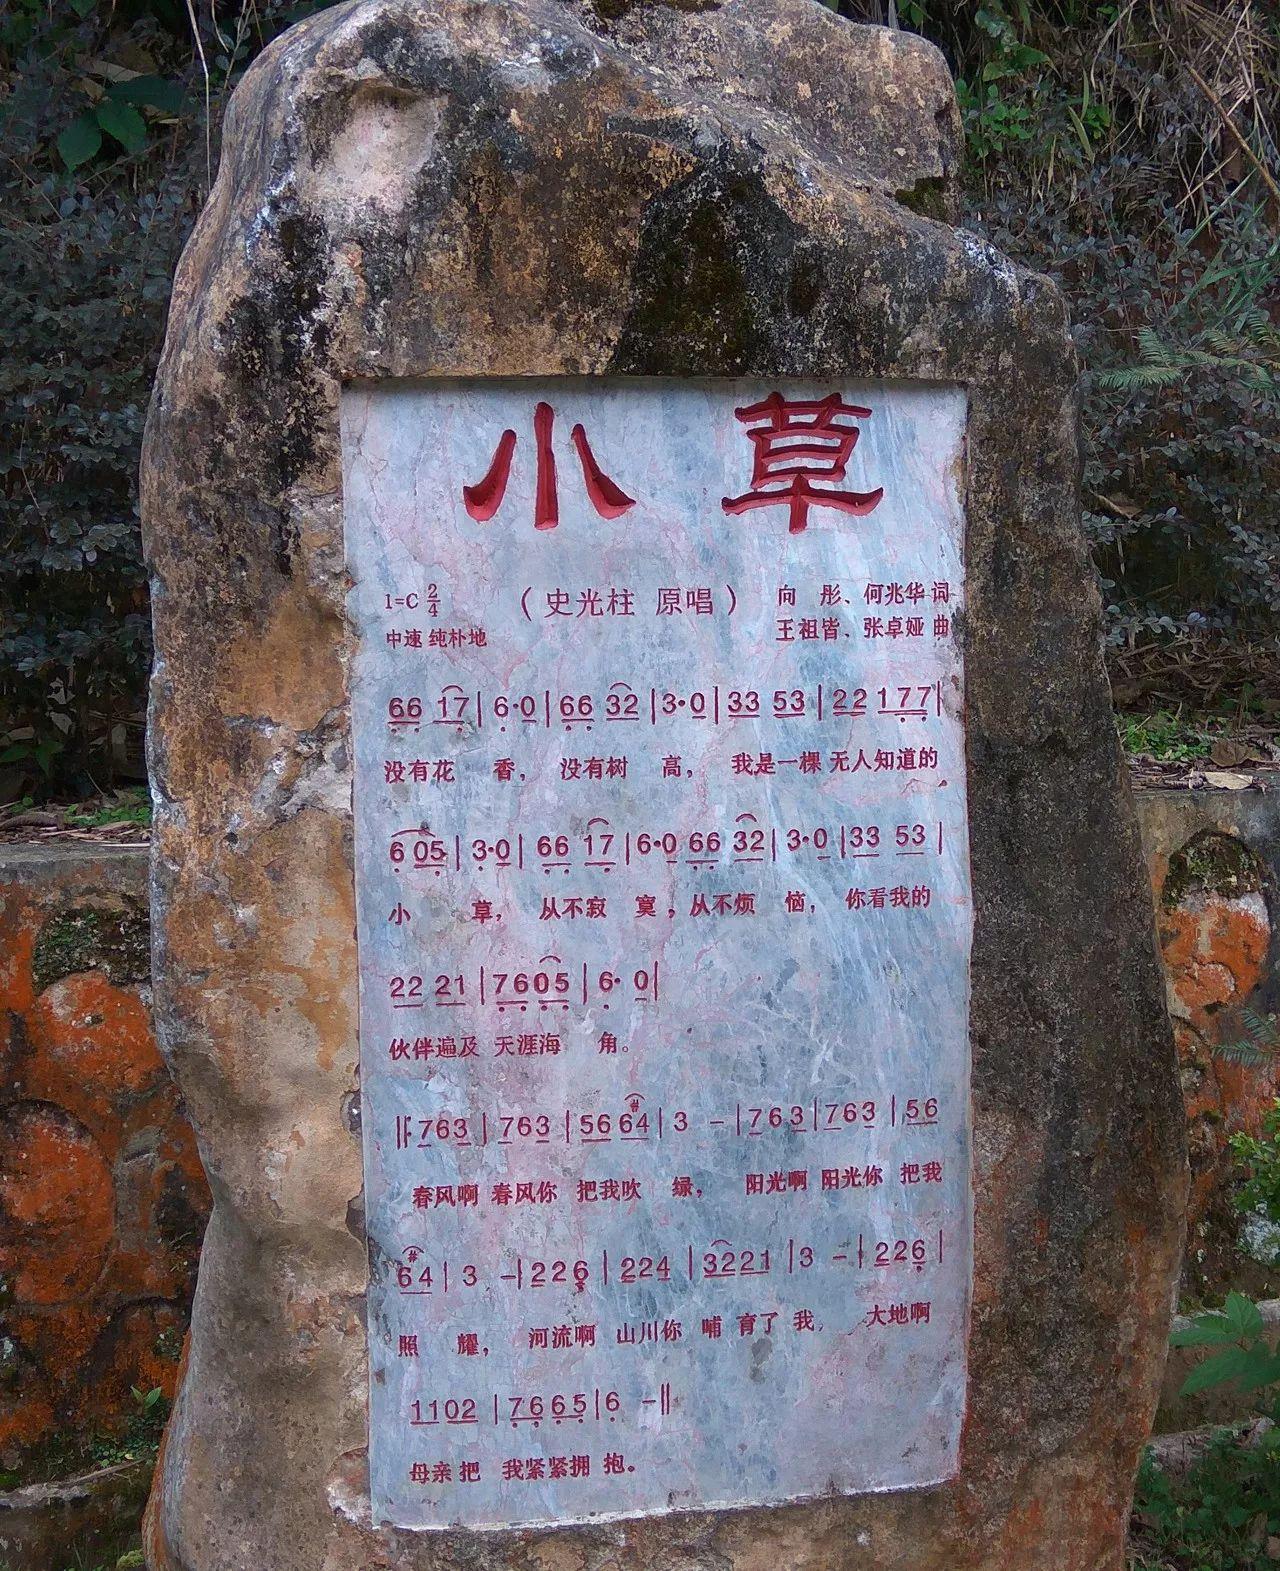 小草
1=C 2/4 (史光柱 原唱) 向彤、何兆华 词
中速 纯朴地 王祖皆、张卓娅 曲
66 17|6·0|66 32|3·0|33 53|22 177|
没有花 香, 没有树 高, 我是一棵 无人知道的
6 05|3·0|66 17|6·0 66 32|3·0|33 53|
小 草, 从不寂 寞, 从不烦 恼, 你看我的
22 21|7605|6· 0|
伙伴遍及 天涯海 角。
‖:763|763|56 6#4|3 －|763|763|56
春风啊 春风你 把我吹 绿, 阳光啊 阳光你 把我
6#4|3 －|226|224|3221|3 －|226|
照 耀, 河流啊 山川你 哺 育了 我, 大地啊
1102|7665|6 －‖
母亲把 我紧紧拥 抱。